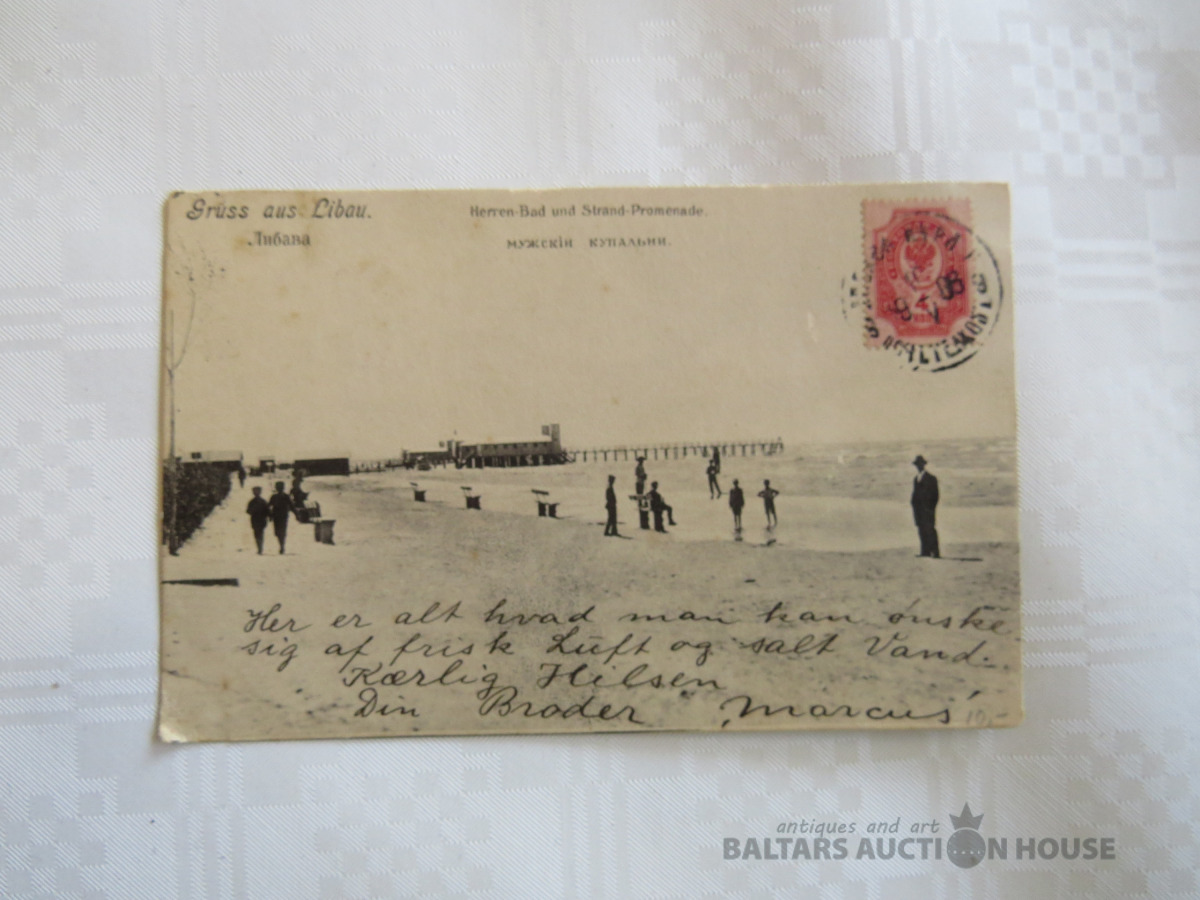 Gruss aus Libau.
Либава
Herren-Bad und Strand-Promenade.
МУЖСКІЙ КУПАЛЬНИ.
4
08
Her er alt hvad man kan ønske
sig af frisk Luft og salt Vand.
Kærlig Hilsen
Din Broder Marcus
10,-
antiques and art
BALTARS AUCTION HOUSE